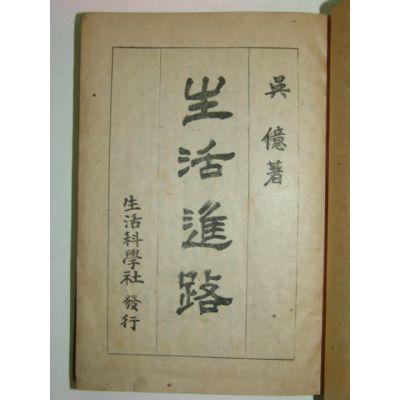 吳億著
生活進路
生活科學社 發行